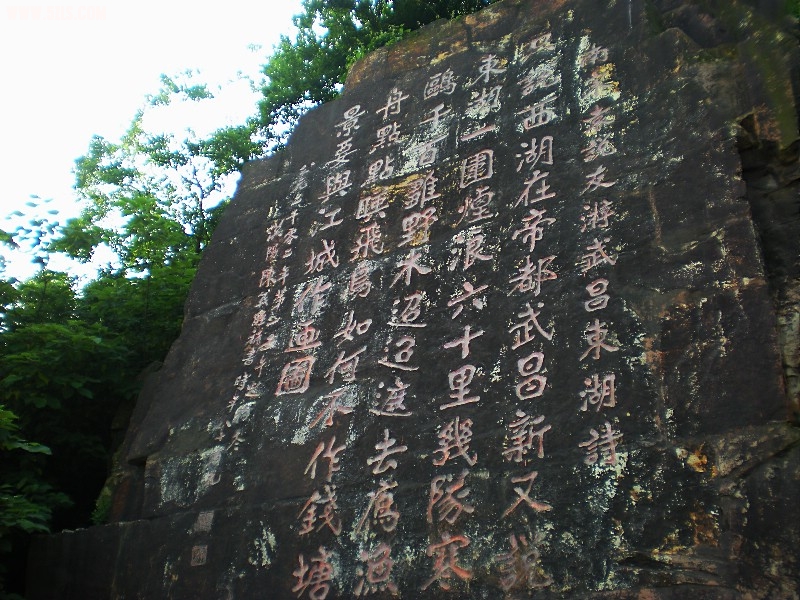 南宋袁說友游武昌東湖詩
只說西湖在帝都武昌新又說
東湖一圍煙浪六十里幾隊寒
鷗千百雛野木迢迢遮去雁漁
舟點點映飛烏如何不作錢塘
景要與江城作画圖